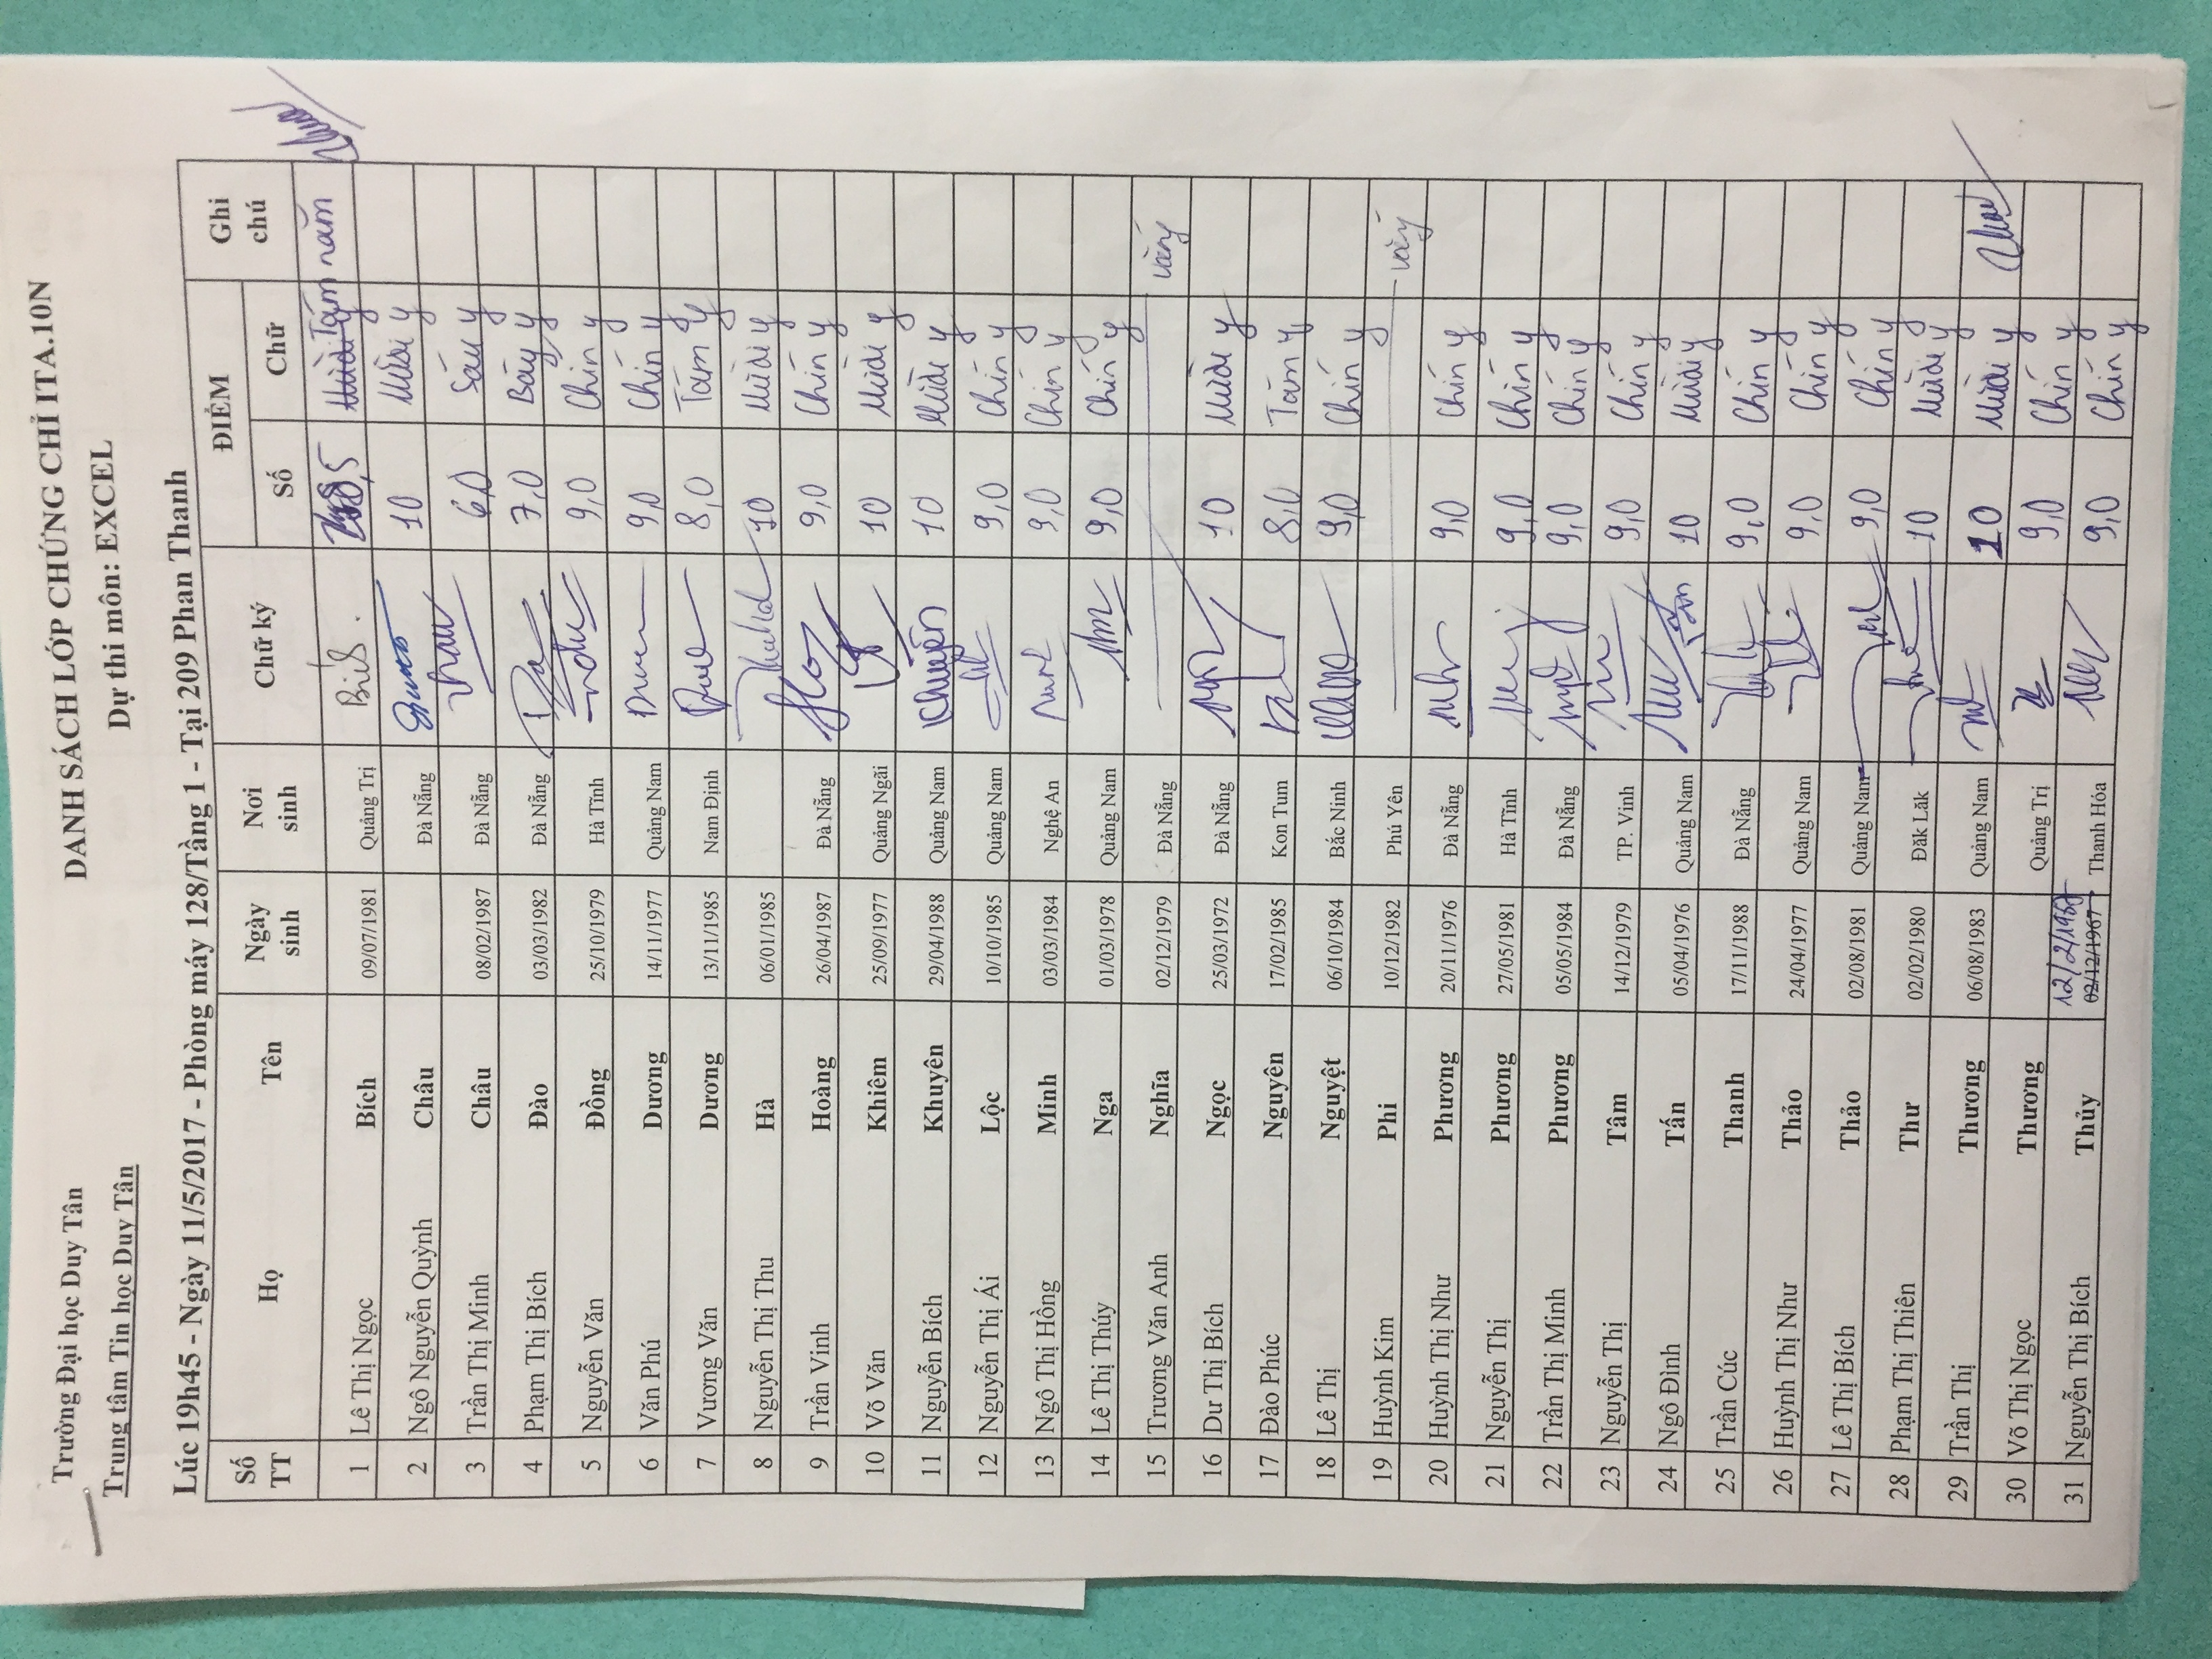 Trường Đại học Duy Tân
Trung tâm Tin học Duy Tân
DANH SÁCH LỚP CHỨNG CHỈ ITA.10N
Dự thi môn: EXCEL
Lúc 19h45 - Ngày 11/5/2017 - Phòng máy 128/Tầng 1 - Tại 209 Phan Thanh
Số TT Họ Tên Ngày sinh Nơi sinh Chữ ký ĐIỂM Ghi chú
Số Chữ
1 Lê Thị Ngọc Bích 09/07/1981 Quảng Trị Tám năm
2 Ngô Nguyễn Quỳnh Châu Đà Nẵng 10 Mười y
3 Trần Thị Minh Châu 08/02/1987 Đà Nẵng 6,0 Sáu y
4 Phạm Thị Bích Đào 03/03/1982 Đà Nẵng 7,0 Bảy y
5 Nguyễn Văn Đồng 25/10/1979 Hà Tĩnh 9,0 Chín y
6 Văn Phú Dương 14/11/1977 Quảng Nam 9,0 Chín y
7 Vương Văn Dương 13/11/1985 Nam Định 8,0 Tám y
8 Nguyễn Thị Thu Hà 06/01/1985 10 Mười y
9 Trần Vinh Hoàng 26/04/1987 Đà Nẵng 9,0 Chín y
10 Võ Văn Khiêm 25/09/1977 Quảng Ngãi 10 Mười y
11 Nguyễn Bích Khuyên 29/04/1988 Quảng Nam Khuyên 10 Mười y
12 Nguyễn Thị Ái Lộc 10/10/1985 Quảng Nam 9,0 Chín y
13 Ngô Thị Hồng Minh 03/03/1984 Nghệ An 9,0 Chín y
14 Lê Thị Thúy Nga 01/03/1978 Quảng Nam 9,0 Chín y
15 Trương Văn Anh Nghĩa 02/12/1979 Đà Nẵng vắng
16 Dư Thị Bích Ngọc 25/03/1972 Đà Nẵng 10 Mười y
17 Đào Phúc Nguyên 17/02/1985 Kon Tum 8,0 Tám y
18 Lê Thị Nguyệt 06/10/1984 Bắc Ninh 9,0 Chín y
19 Huỳnh Kim Phi 10/12/1982 Phú Yên vắng
20 Huỳnh Thị Như Phương 20/11/1976 Đà Nẵng 9,0 Chín y
21 Nguyễn Thị Phương 27/05/1981 Hà Tĩnh 9,0 Chín y
22 Trần Thị Minh Phương 05/05/1984 Đà Nẵng 9,0 Chín y
23 Nguyễn Thị Tâm 14/12/1979 TP. Vinh 9,0 Chín y
24 Ngô Đình Tấn 05/04/1976 Quảng Nam 10 Mười y
25 Trần Cúc Thanh 17/11/1988 Đà Nẵng 9,0 Chín y
26 Huỳnh Thị Như Thảo 24/04/1977 Quảng Nam 9,0 Chín y
27 Lê Thị Bích Thảo 02/08/1981 Quảng Nam 9,0 Chín y
28 Phạm Thị Thiên Thư 02/02/1980 Đăk Lăk 10 Mười y
29 Trần Thị Thương 06/08/1983 Quảng Nam 10 Mười y
30 Võ Thị Ngọc Thương Quảng Trị 9,0 Chín y
31 Nguyễn Thị Bích Thủy 02/12/1967 Thanh Hóa 9,0 Chín y